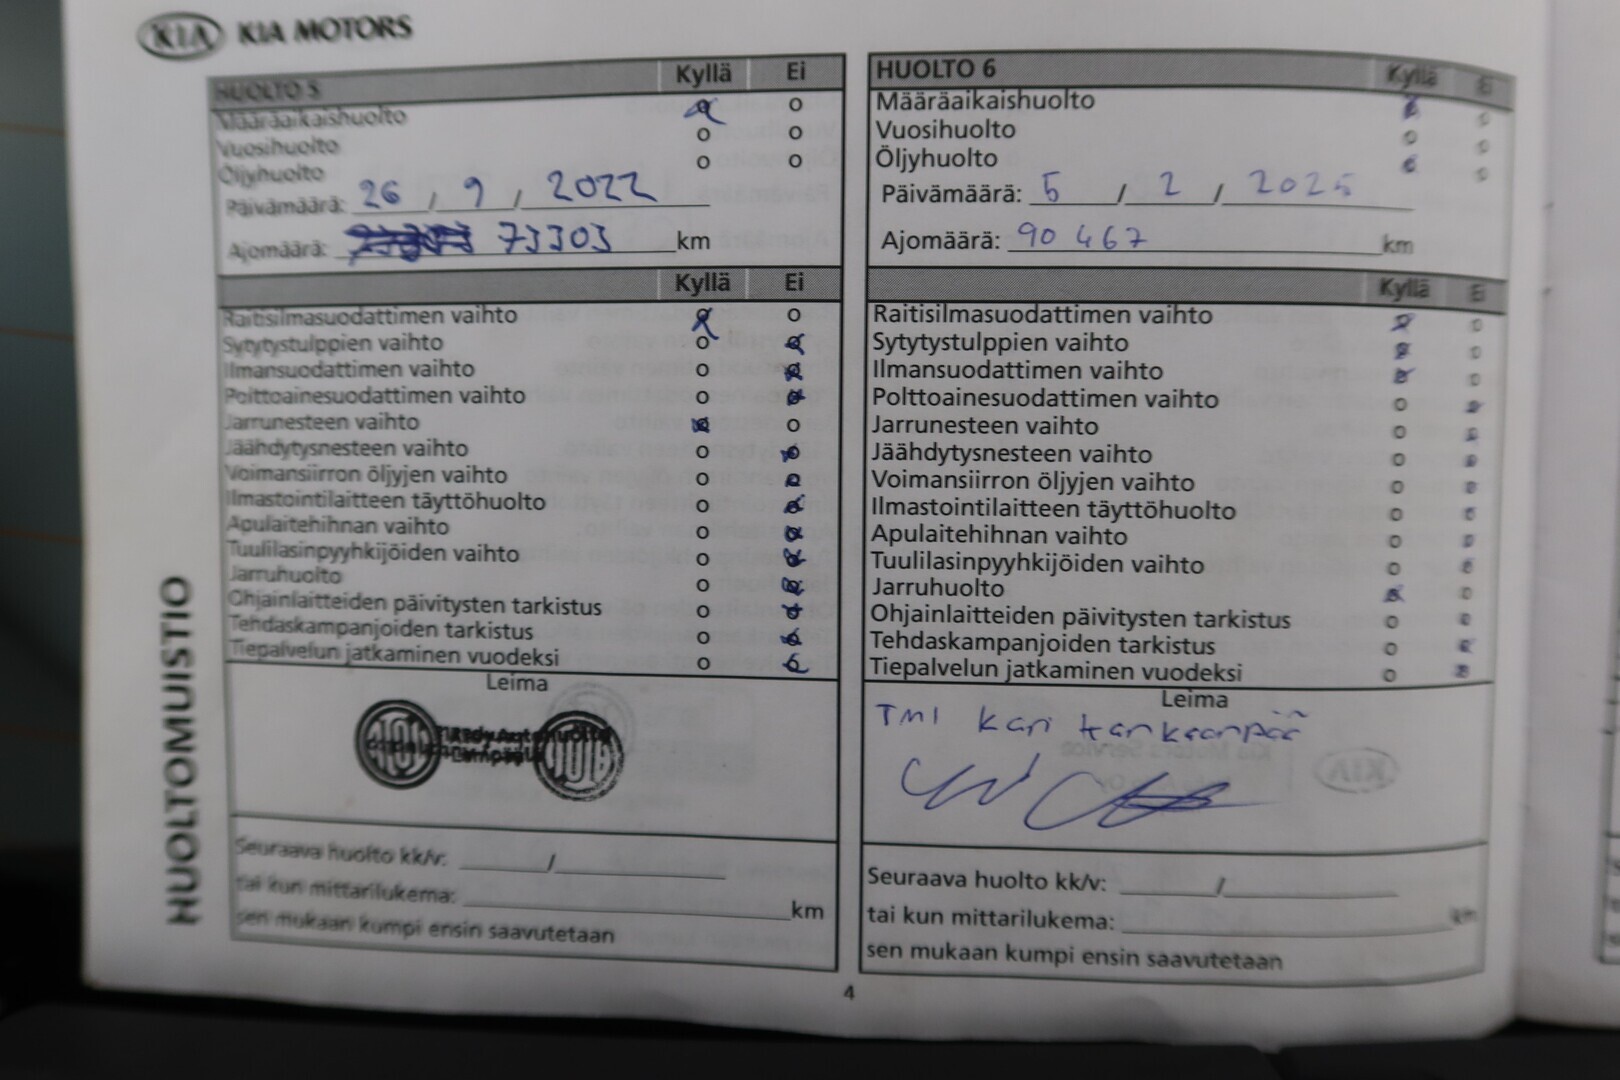 KIA KIA MOTORS
HUOLTO 5 Kyllä Ei
Määräaikaishuolto o
Vuosihuolto o o
Öljyhuolto o o
Päivämäärä: 26 / 9 / 2022
Ajomäärä: 73303 km
Kyllä Ei
Raitisilmasuodattimen vaihto
Sytytystulppien vaihto
Ilmansuodattimen vaihto
Polttoainesuodattimen vaihto
Jarrunesteen vaihto
Jäähdytysnesteen vaihto
Voimansiirron öljyjen vaihto
Ilmastointilaitteen täyttöhuolto
Apulaitehihnan vaihto
Tuulilasinpyyhkijöiden vaihto
Jarruhuolto
Ohjainlaitteiden päivitysten tarkistus
Tehdaskampanjoiden tarkistus
Tiepalvelun jatkaminen vuodeksi
Leima
Seuraava huolto kk/v: /
tai kun mittarilukema: km
sen mukaan kumpi ensin saavutetaan
HUOLTO 6 Kyllä Ei
Määräaikaishuolto
Vuosihuolto
Öljyhuolto
Päivämäärä: 5 / 2 / 2025
Ajomäärä: 90 467 km
Kyllä Ei
Raitisilmasuodattimen vaihto
Sytytystulppien vaihto
Ilmansuodattimen vaihto
Polttoainesuodattimen vaihto
Jarrunesteen vaihto
Jäähdytysnesteen vaihto
Voimansiirron öljyjen vaihto
Ilmastointilaitteen täyttöhuolto
Apulaitehihnan vaihto
Tuulilasinpyyhkijöiden vaihto
Jarruhuolto
Ohjainlaitteiden päivitysten tarkistus
Tehdaskampanjoiden tarkistus
Tiepalvelun jatkaminen vuodeksi
Leima
TMI Kari Kankaanpää
Seuraava huolto kk/v: /
tai kun mittarilukema: km
sen mukaan kumpi ensin saavutetaan
HUOLTOMUISTIO
4